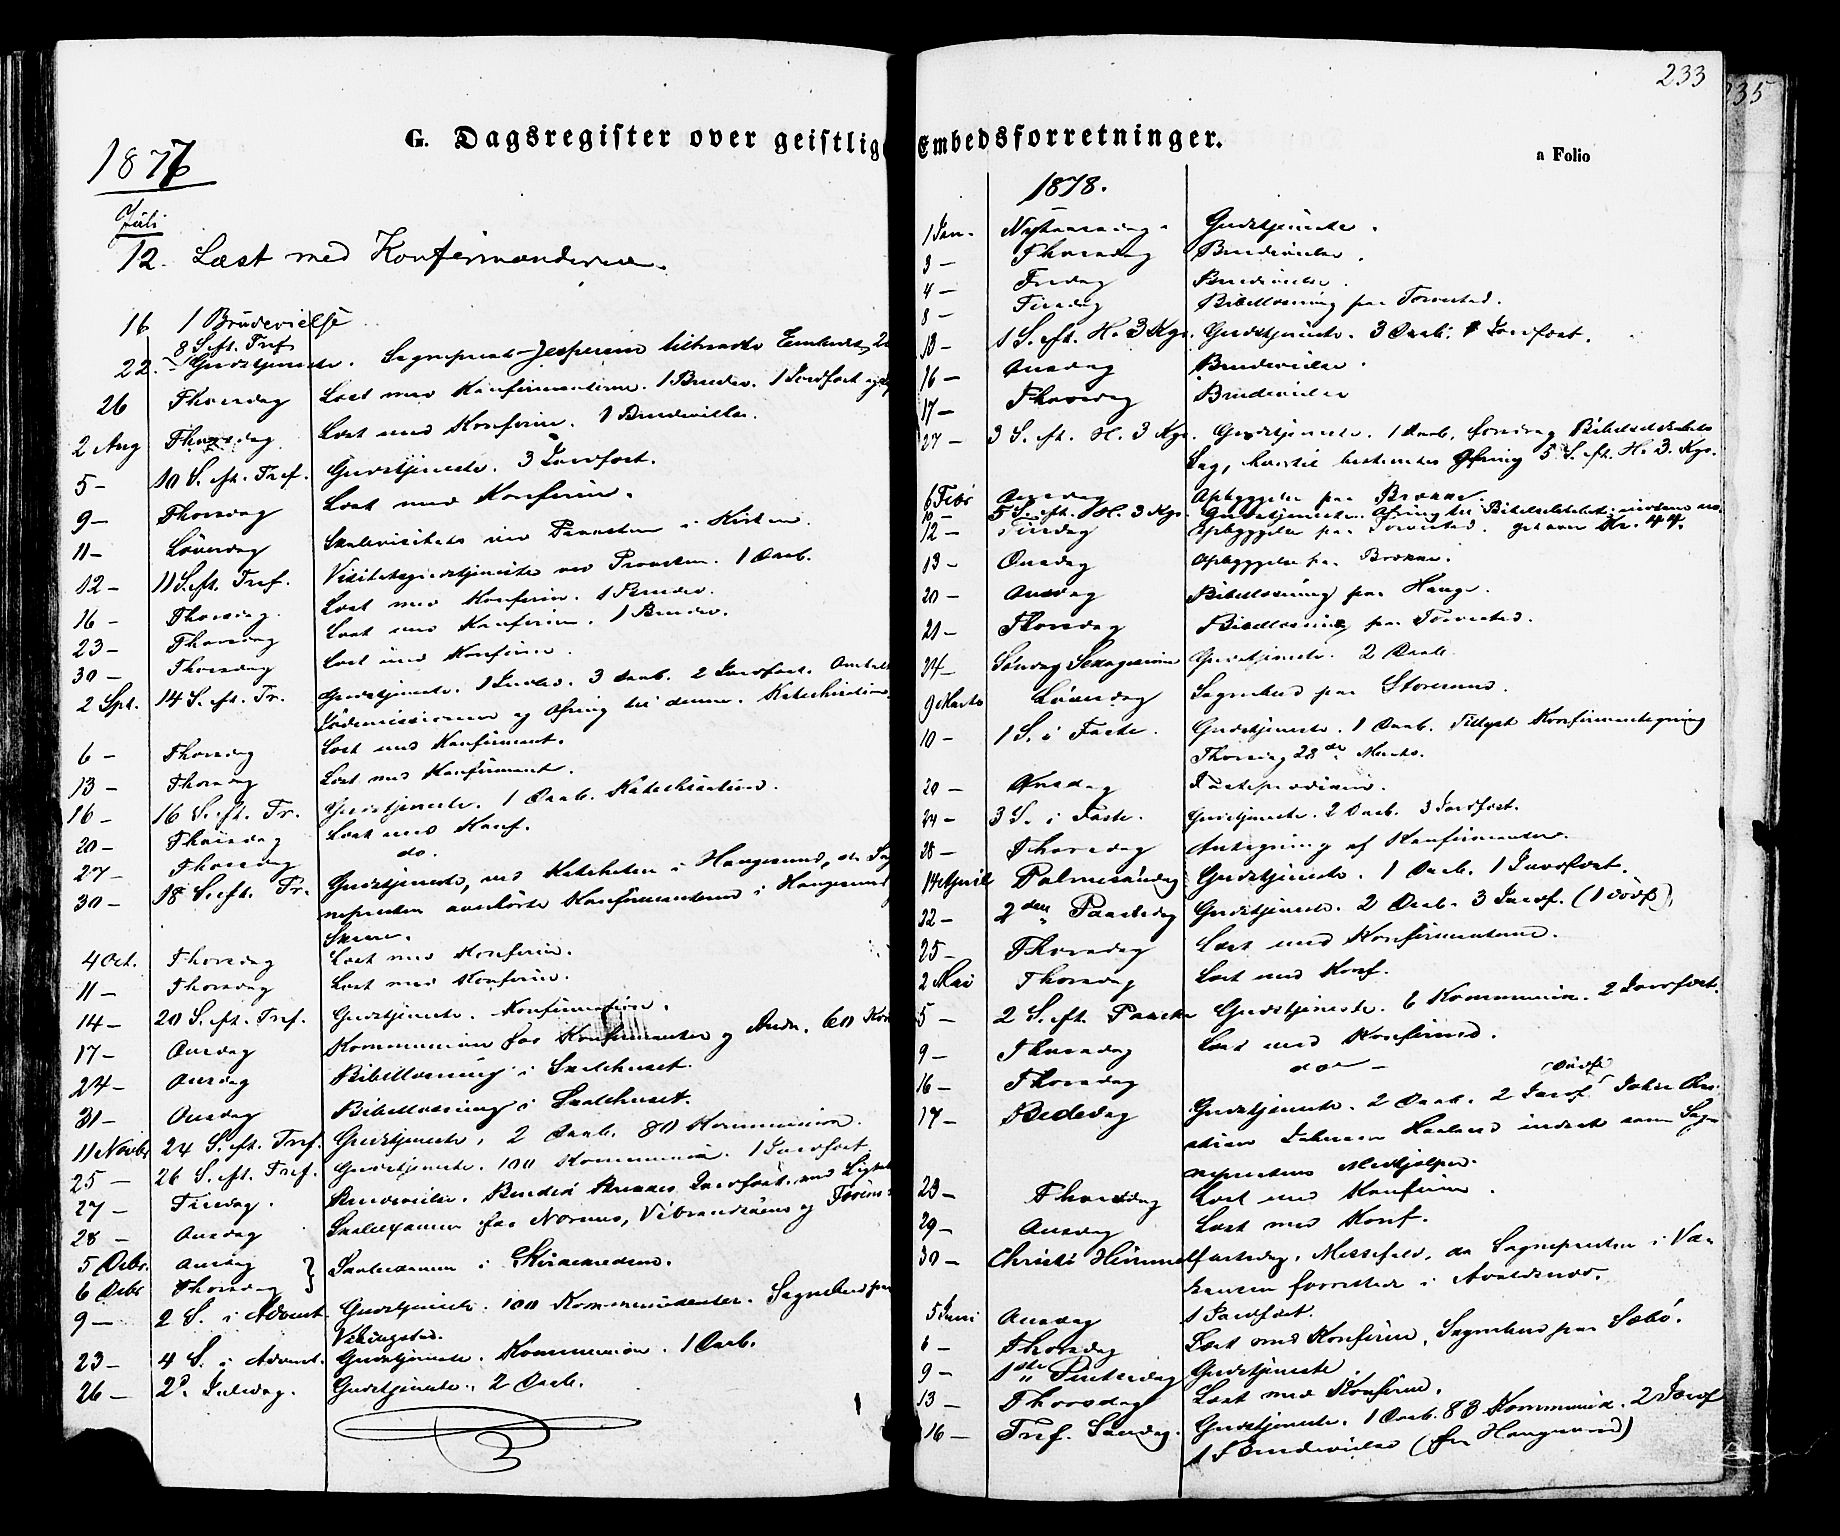 233
235
G. Dagsregister over geistlig Embedsforretninger.
a Folio
1877
Juli
12. Læst med Konfirmanderne.
16 1 Brudevielse
8 S. eft. Tref.
22. Gudstjeneste. Sognepræst Jespersen tiltraadte Embedet,
26 Thorsdag Læst med Konfirmanterne. 1 Brudev. 1 Jordfæst
2 Aug Thorsdag Læst med Konfirm. 1 Brudevielse.
5 – 10 S. eft. Tref. Gudstjeneste. 3 Jordfæst.
9 – Thorsdag Læst med Konfirm.
11 – Løverdag Skolevisitats ved Provsten i Kirken.
12 – 11 S. eft. Tref. Visitatsgudstjeneste ved Provsten. 1 Daab.
16 – Thorsdag. Læst med Konfirm. 1 Brudev.
23 – Thorsdag Læst med Konfirm. 1 Brudev.
30 – Thorsdag Læst med Konfirm.
2 Spt. 14 S. eft. Tr. Gudstjeneste. 1 Introd. 3 Daab. 2 Jordfæst. Omtalt
Jødemissionen og Ofring til denne. Katechisation.
6 – Thorsdag Læst med Konfirmant.
13 – Thorsdag Læst med Konfirmant.
16 – 16 S. eft. Tr. Gudstjeneste. 1 Daab. Katechisation.
20 – Thorsdag Læst med Konf.
27 – Thorsdag do.
30 – 18 S. eft. Tr. Gudstjeneste, ved Katecheten i Haugesund, da Sog
nepresten overhørte Konfirmanderne i Haugesund
Skaare.
4 Oct. Thorsdag Læst med Konfirm.
11 – Thorsdag Læst med Konfirm.
14 – 20 S. eft. Tref. Gudstjeneste. Konfirmation.
17 – Onsdag Kommunion for Konfirmanter og Andre. 60 Kom
24 – Onsdag Bibellæsning i Skolehuset.
31 – Onsdag Bibellæsning i Skolehuset.
11 Novbr 24 S. eft. Tref. Gudstjeneste. 2 Daab. 80 Kommunion.
25 – 26 S. eft. Tref. Gudstjeneste. 100 Kommunion. 1 Jordfæst
27 – Tirsdag. Brudevielse. Jordfæst. med Ligtale
28 – Onsdag Skolexamen for Nornes, Vibrandsøens og
5 Dcbr. Onsdag
6 Dcbr Thorsdag } Skolexamen i
9 – 2 S. i Advent Gudstjeneste. 100 Kommunikanter. Sognebud paa
Vikingstad.
23 – 4 S. i Advent. Gudstjeneste. Kommunion. 1 Daab.
26 – 2d. Juledag. Gudstjeneste. 2 Daab.
1878.
1 Jan. Nytaarsdag. Gudstjeneste.
3 – Thorsdag Brudevielse.
4 – Fredag Brudevielse.
8 – Tirsdag Bibellæsning paa Torvestad.
13 – 1 S. eft. H. 3 Kgr. Gudstjeneste. 3 Daab. 1 Jordfæst.
16 – Onsdag Brudevielse.
17 – Thorsdag Brudevielse
27 – 3 S. eft. H. 3 Kgr. Gudstjeneste. 1 Daab. Foredrag Bibelselskabets
Sag, hvortil bestemtes Ofring 5 S. eft. H. 3. Kgr.
6 Febr Onsdag Opbyggelse paa Brekke.
10 – 5 S. eft. H. 3 Kgr. Gudstjeneste. Ofring til Bibelselskabet
12 – Tirsdag Opbyggelse paa Torvestad. Kr. 44.
13 – Onsdag Opbyggelse paa Brekke.
20 – Onsdag Bibellæsning paa Hauge.
21 – Thorsdag Bibellæsning paa Torvestad.
24 – Søndag Sexagesima Gudstjeneste. 2 Daab.
9 Marts Løverdag Sognebud paa Storesund.
10 – 1 S. i Faste. Gudstjeneste. 1 Daab. Tillyst Konfirmantegning
Thorsdag 28de Marts.
20 – Onsdag Fasteprædiken.
24 – 3 S. i Faste. Gudstjeneste. 2 Daab. 3 Jordfæst.
28 – Thorsdag Antegning af Konfirmanter.
14 April Palmesøndag Gudstjeneste. 1 Daab. 1 Jordfæst.
22 – 2den Paaskedag Gudstjeneste. 2 Daab. 3 Jordf. (1 dødf)
25 – Thorsdag Læst med Konfirmanterne.
2 Mai Thorsdag Læst med Konf.
5 – 2 S. eft. Paaske Gudstjeneste. Kommunion. 2 Jordfæst.
9 – Thorsdag Læst med Konfirmd.
16 – Thorsdag do –
17 – Bededag Gudstjeneste. 2 Daab. 2 Jordf. (dødf) John Chri-
stian Johnsen Haaland indsat som Sog-
neprestens Medhjælper.
23 – Thorsdag Læst med Konfirm.
29 – Onsdag Læst med Konf.
30 – Christi Himmelfartsdag. Messefald, da Sognepresten i Va-
kancen forrettede i Avaldsnes.
5 Juni Onsdag 1 Jordfæst.
6 – Thorsdag Læst med Konfirm. Sognebud paa Sæbø.
9 – 1ste Pintsedag Gudstjeneste
13 – Thorsdag Læst med Konfirm.
16 – Tref. Søndag. Gudstjeneste. 1 Daab. 83 Kommunik. 2 Jordf
1 Brudevielse (fra Haugesund)